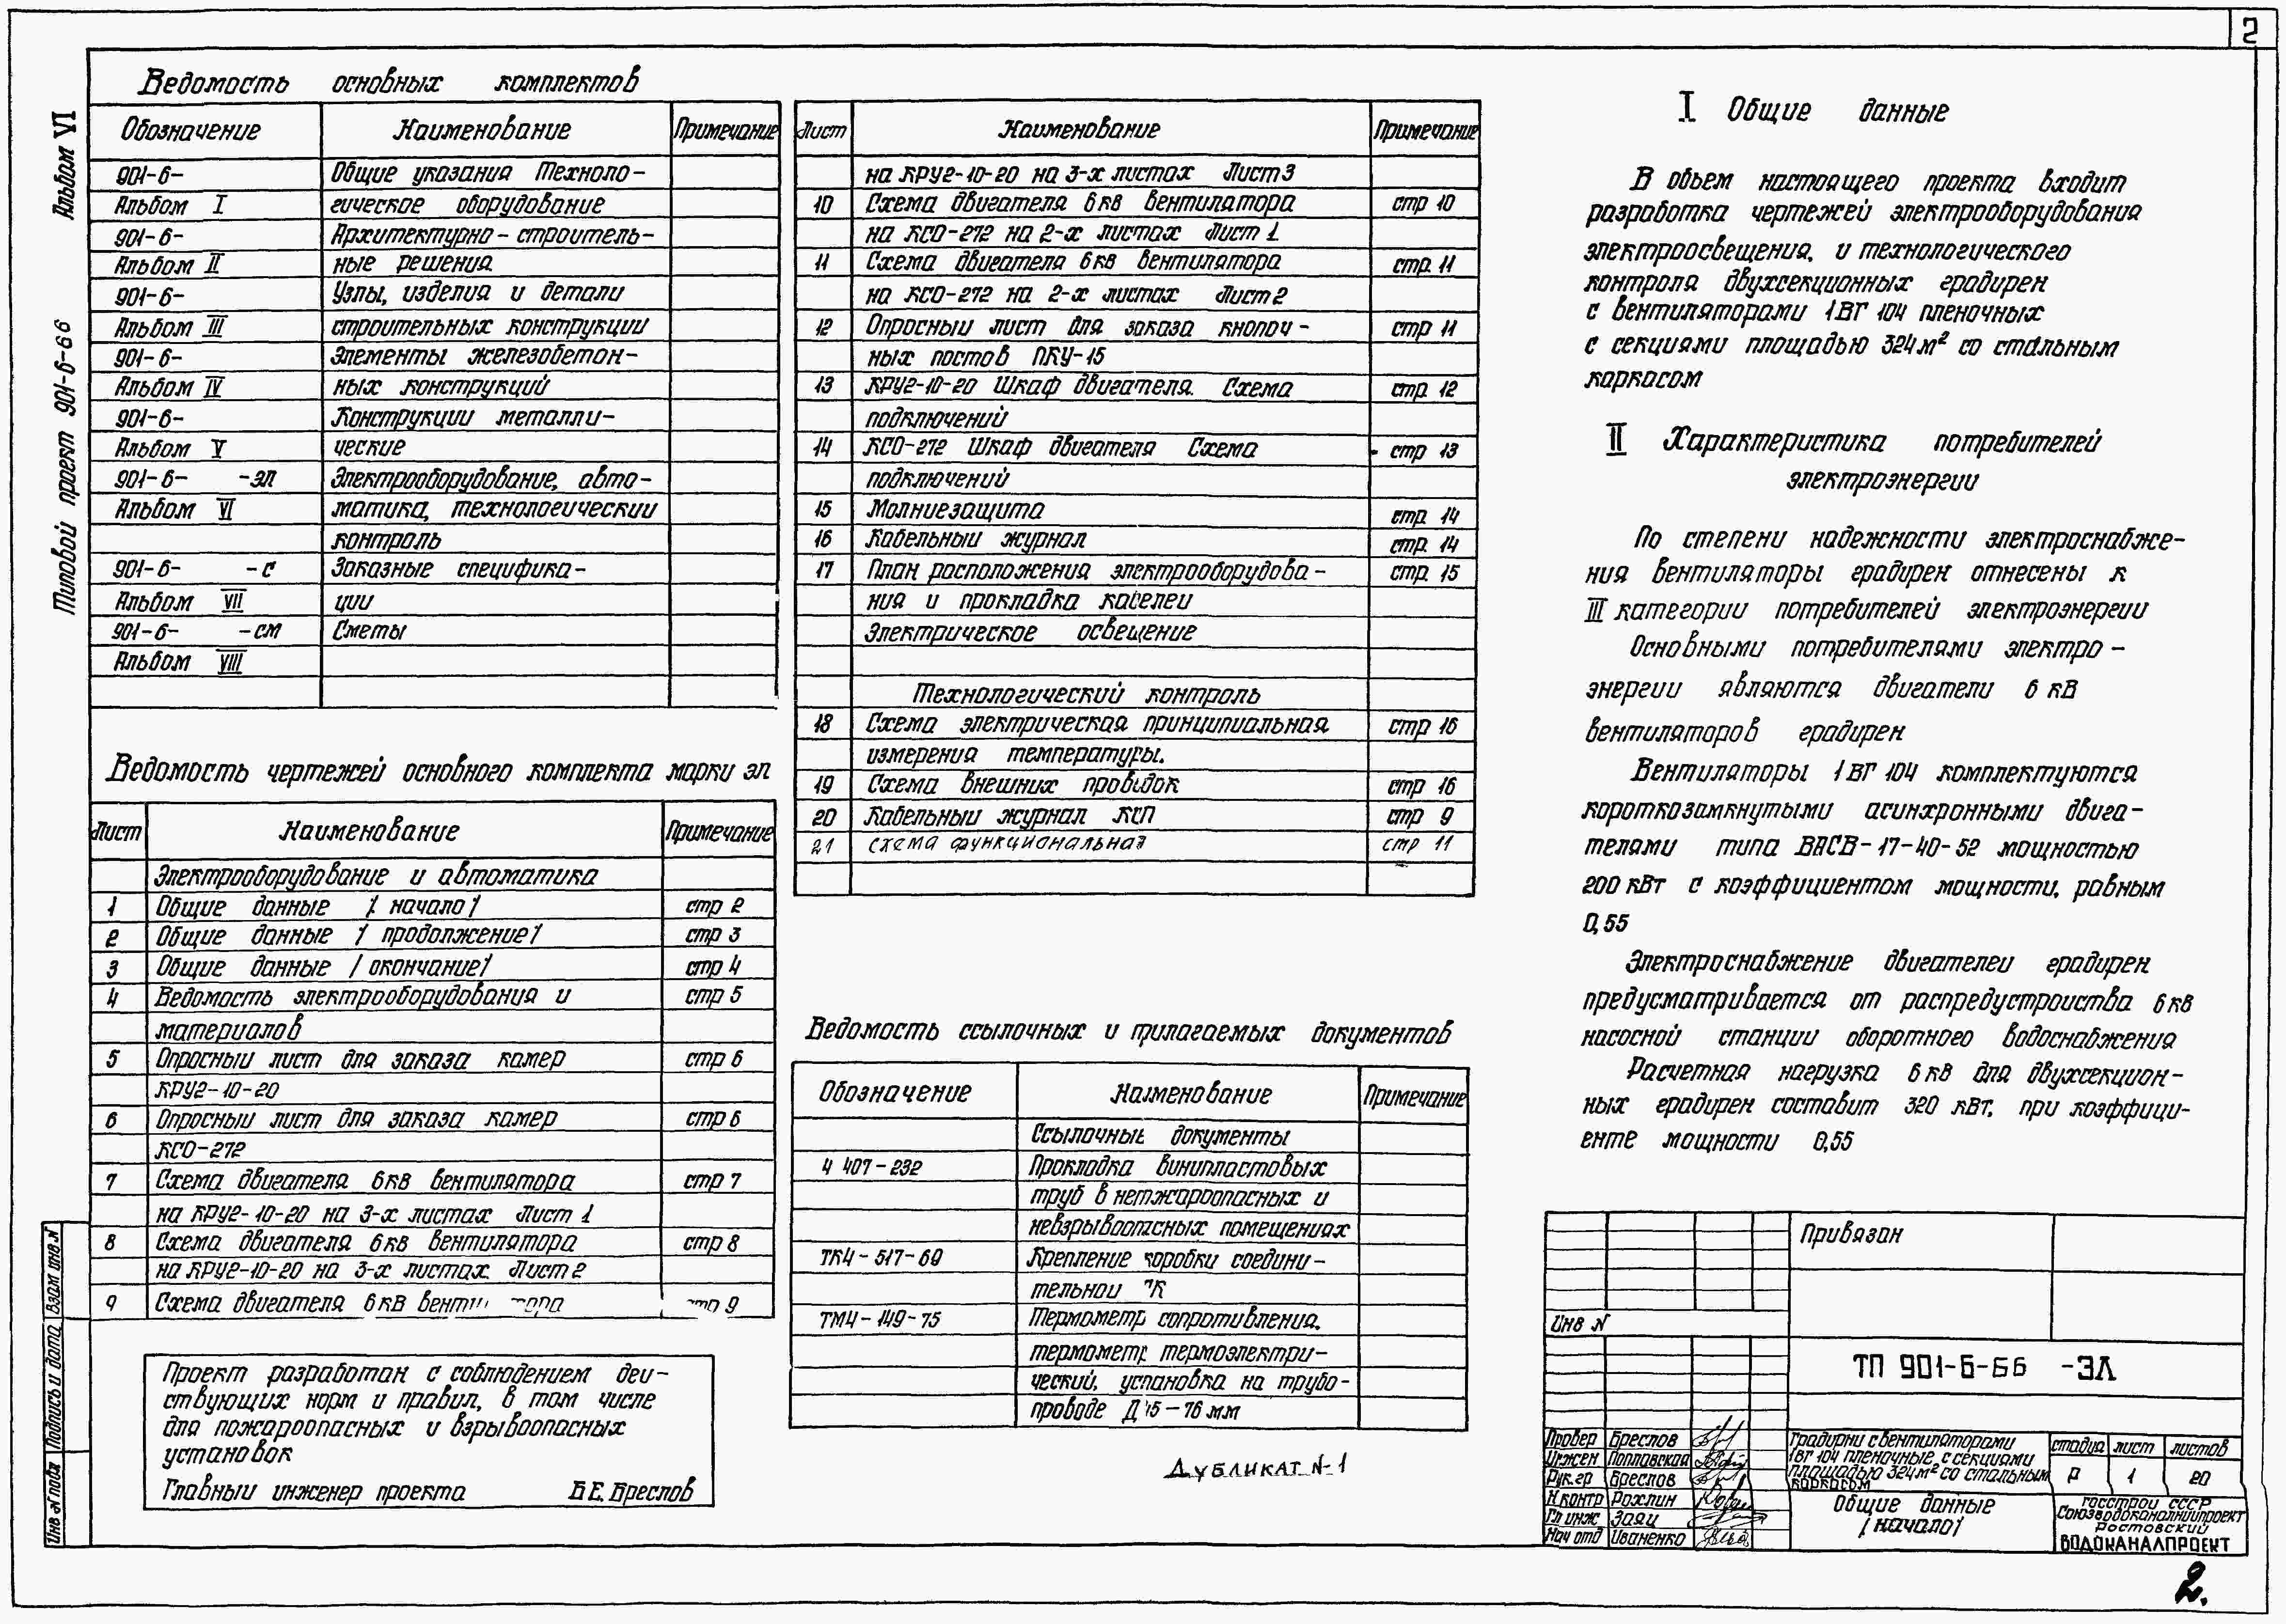 2
Альбом VI
Типовой проект 901-6-66
Ведомость основных комплектов
Обозначение Наименование Примечание
901-6- Общие указания Техноло-
Альбом I гическое оборудование
901-6- Архитектурно-строитель-
Альбом II ные решения
901-6- Узлы, изделия и детали
Альбом III строительных конструкции
901-6- Элементы железобетон-
Альбом IV ных конструкций
901-6- Конструкции металли-
Альбом V ческие
901-6- -ЭЛ Электрооборудование, авто-
Альбом VI матика, технологически
контроль
901-6- -С Заказные специфика-
Альбом VII ции
901-6- -СМ Сметы
Альбом VIII
Ведомость чертежей основного комплекта марки ЭЛ
Лист Наименование Примечание
Электрооборудование и автоматика
1 Общие данные /начало/ стр 2
2 Общие данные /продолжение/ стр 3
3 Общие данные /окончание/ стр 4
4 Ведомость электрооборудования и стр 5
материалов
5 Опросный лист для заказа камер стр 6
КРУ2-10-20
6 Опросный лист для заказа камер стр 6
КСО-272
7 Схема двигателя 6кВ вентилятора стр 7
на КРУ2-10-20 на 3-х листах Лист 1
8 Схема двигателя 6кВ вентилятора стр 8
на КРУ2-10-20 на 3-х листах. Лист 2
9 Схема двигателя 6кВ вентилятора стр 9
Проект разработан с соблюдением деи-
ствующих норм и правил, в том числе
для пожароопасных и взрывоопасных
установок
Главный инженер проекта Б.Е. Бреслов
Лист Наименование Примечание
на КРУ2-10-20 на 3-х листах Лист 3
10 Схема двигателя 6кВ вентилятора стр 10
на КСО-272 на 2-х листах Лист 1
11 Схема двигателя 6кВ вентилятора стр. 11
на КСО-272 на 2-х листах Лист 2
12 Опросный лист для заказа кнопоч- стр 11
ных постов ПКУ-15
13 КРУ2-10-20 Шкаф двигателя. Схема стр. 12
подключений
14 КСО-272 Шкаф двигателя Схема стр 13
подключений
15 Молниезащита стр. 14
16 Кабельный журнал стр. 14
17 План расположения электрооборудова- стр. 15
ния и прокладка кабелеи
Электрическое освещение
Технологический контроль
18 Схема электрическая принципиальная стр 16
измерения температуры.
19 Схема внешних проводок стр 16
20 Кабельный журнал КИП стр 9
21 схема функциональная стр 11
Ведомость ссылочных и прилагаемых документов
Обозначение Наименование Примечание
Ссылочные документы
4 407-232 Прокладка винипластовых
труб в непожароопасных и
невзрывоопасных помещениях
ТК4-517-69 Крепление коробки соедини-
тельнои
ТМ4-149-75 Термометр сопротивления.
термометр термоэлектри-
ческий, установка на трубо-
проводе Д 45-76 мм
Дубликат N-1
I Общие данные
В объем настоящего проекта входит
разработка чертежей электрооборудования
электроосвещения, и технологического
контроля двухсекционных градирен
с вентиляторами 1ВГ 104 пленочных
с секциями площадью 324м² со стальным
каркасом
II Характеристика потребителей
электроэнергии
По степени надежности электроснабже-
ния вентиляторы градирен отнесены к
III категории потребителей электроэнергии
Основными потребителями электро-
энергии являются двигатели 6 кВ
вентиляторов градирен
Вентиляторы 1ВГ 104 комплектуются
короткозамкнутыми асинхронными двига-
телями типа ВАСВ-17-40-52 мощностью
200 кВт с коэффициентом мощности, равным
0,55
Электроснабжение двигателеи градирен
предусматривается от распредустроиства 6кВ
насосной станции оборотного водоснабжения
Расчетная нагрузка 6кВ для двухсекцион-
ных градирен составит 320 кВт, при коэффици-
енте мощности 0,55
Привязан
Инв N
ТП 901-6-66 -ЭЛ
Провер Бреслов
Инжен Поплавская
Рук.гр Бреслов
Н контр Рохлин
Гл инж Заяц
Нач отд Иваненко
Градирни с вентиляторами
1ВГ 104 пленочные, с секциями
площадью 324м² со стальным
каркасом
стадия лист листов
Р 1 20
Общие данные
/начало/
Госстрой СССР
Союзводоканалниипроект
Ростовский
ВОДОКАНАЛПРОЕКТ
Взам инв N
Подпись и дата
Инв N подл
2.